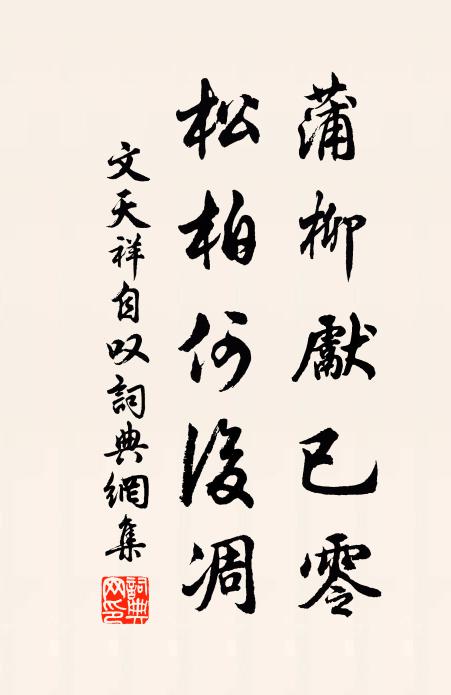 蒲柳獻已零
松柏何後凋
文天祥自叹詞典網集
詞典网印